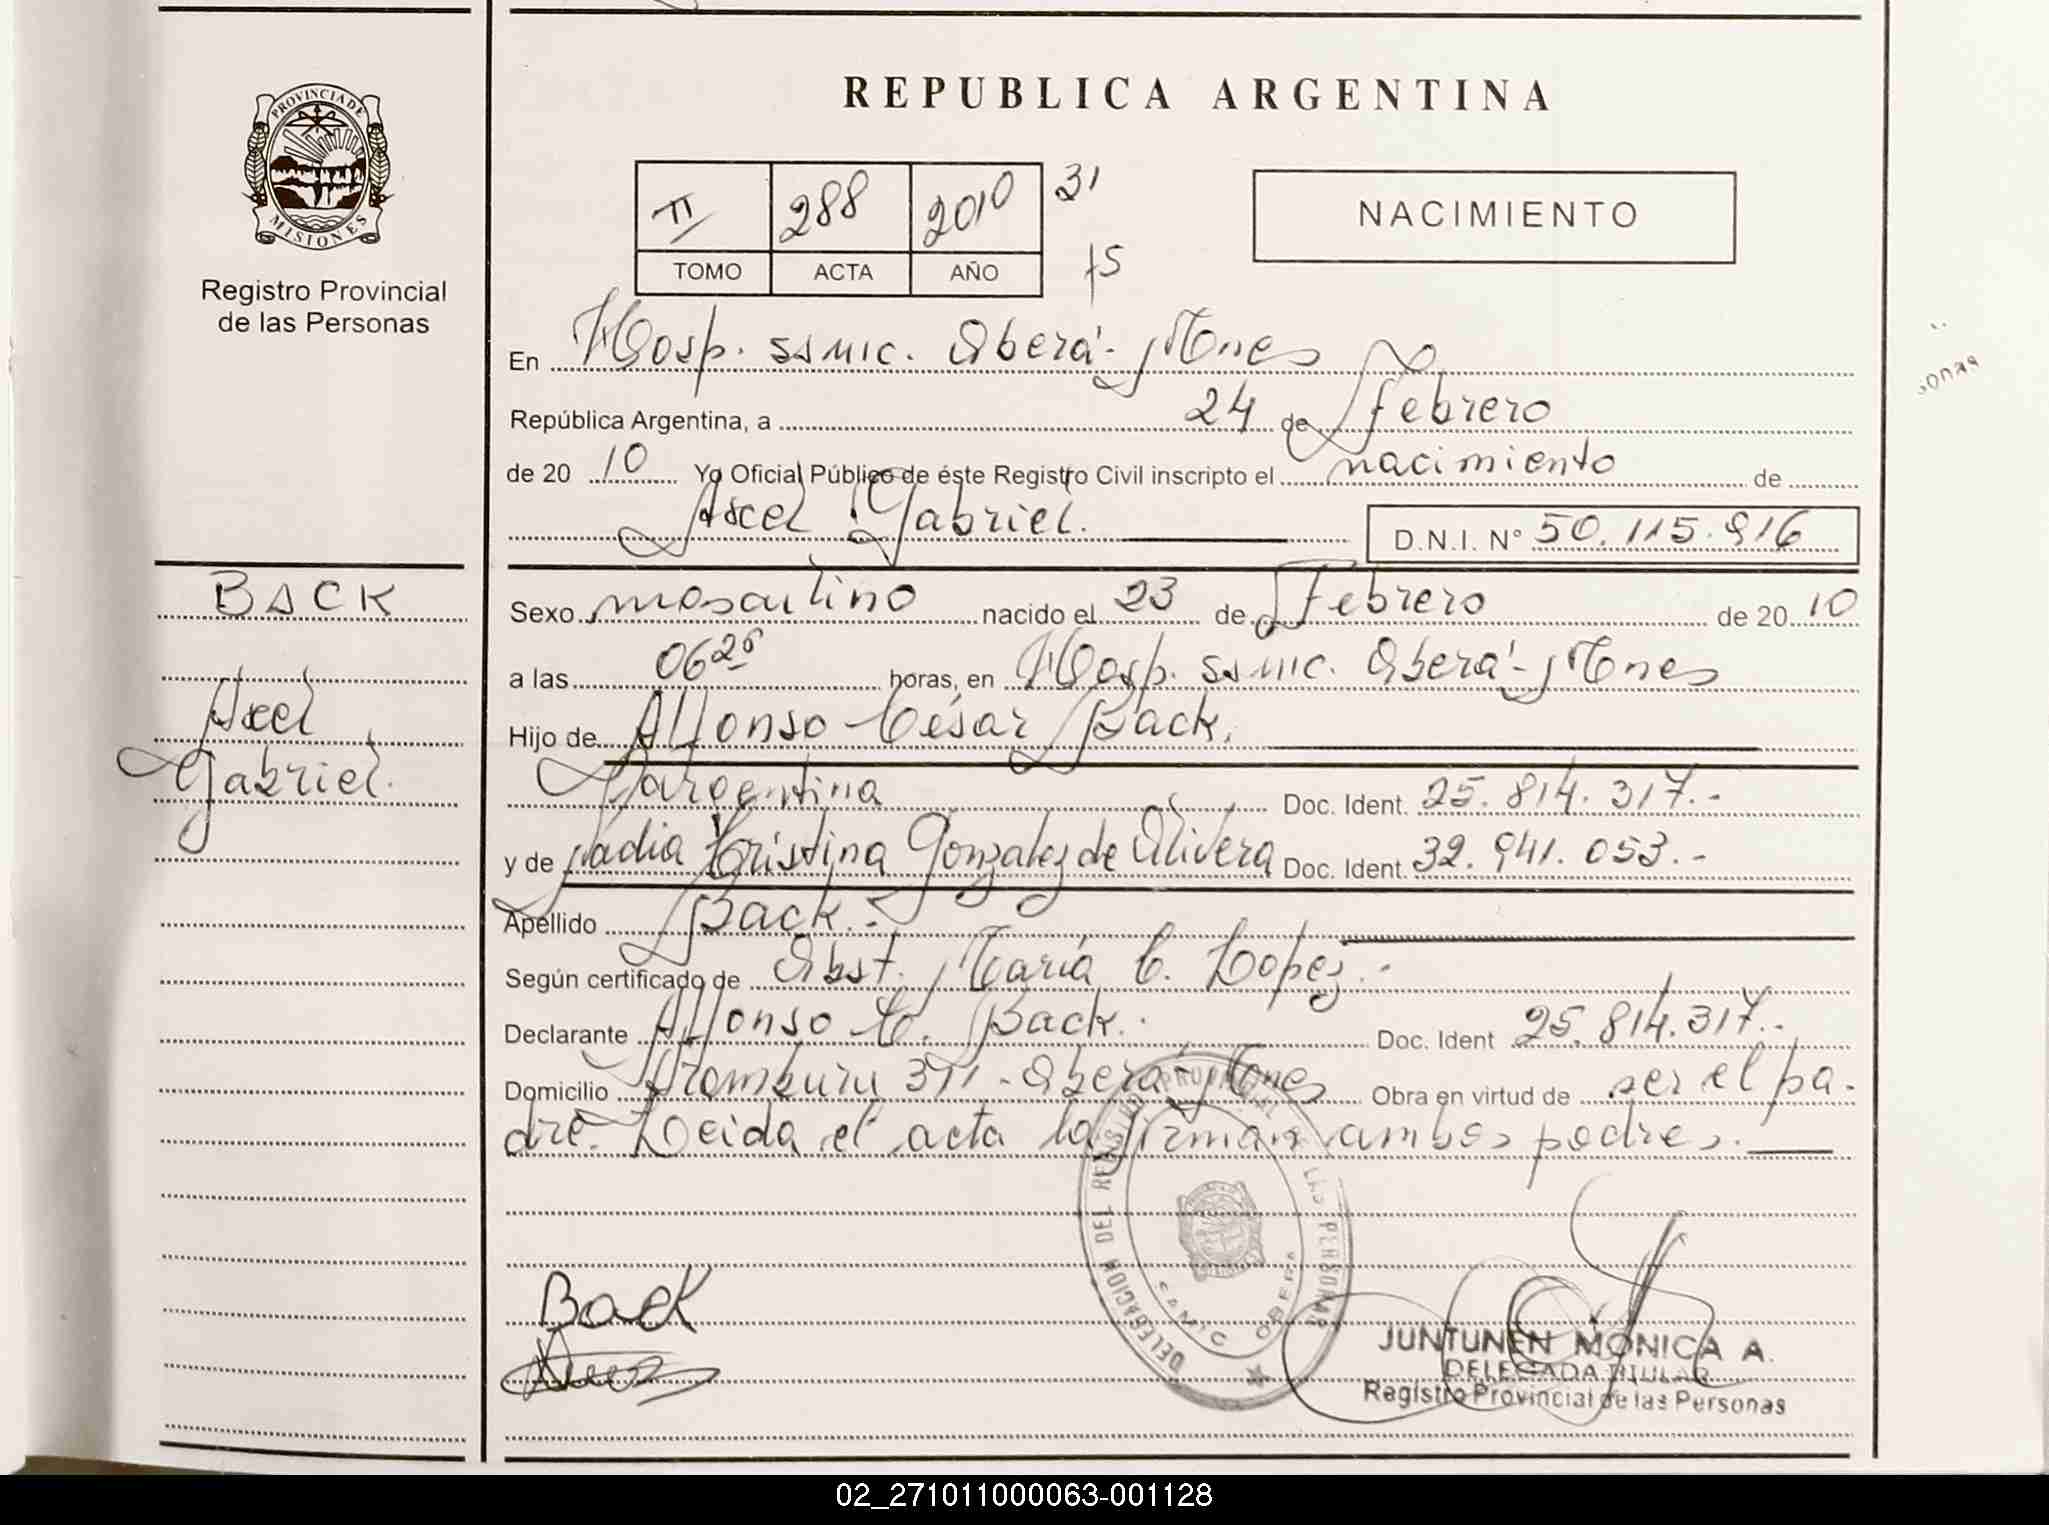 REPUBLICA ARGENTINA
PROVINCIA DE
MISIONES
Registro Provincial
de las Personas
II 288 2010 31
TOMO ACTA AÑO
NACIMIENTO
En Hosp. SAMIC. Oberá - Mnes
República Argentina, a 24 de Febrero
de 20 10 Yo Oficial Público de éste Registro Civil inscripto el nacimiento de
Axel Gabriel.
D.N.I. N° 50.115.916
BACK
Axel
Gabriel.
Sexo masculino nacido el 23 de Febrero de 20 10
a las horas, en Hosp. SAMIC. Oberá - Mnes
Hijo de Alfonso César Back.
argentina Doc. Ident. 25.814.317.-
y de Nadia Cristina Gonzalez de Olivera Doc. Ident. 32.941.053.-
Apellido Back.-
Según certificado de Obst. María C. Lopez.-
Declarante Alfonso C. Back. Doc. Ident 25.814.317.-
Domicilio - Oberá - Mnes Obra en virtud de ser el pa-
dre. Leida el acta la firman ambos padres.
DELEGACION DEL REGISTRO PROVINCIAL DE LAS PERSONAS
SAMIC OBERA
Back
JUNTUNEN MONICA A.
DELEGADA TITULAR
Registro Provincial de las Personas
02_271011000063-001128